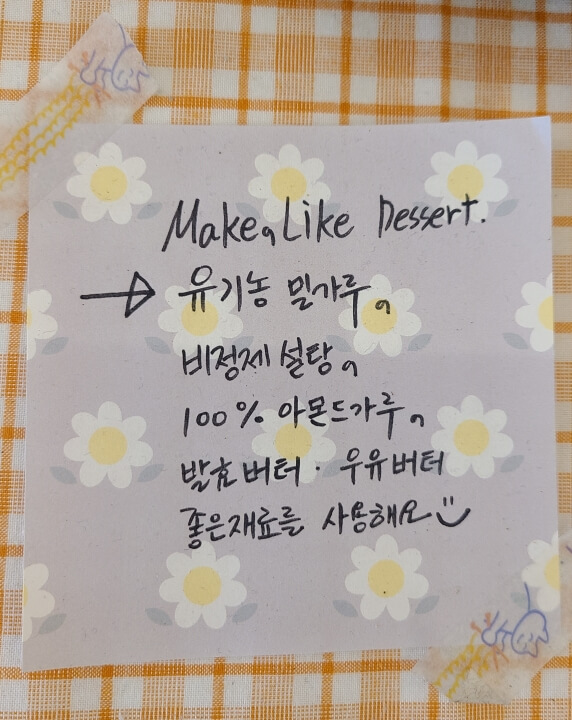 Make, Like Dessert.
유기농 밀가루,
비정제 설탕,
100% 아몬드가루,
발효버터 · 우유버터
좋은재료를 사용해요